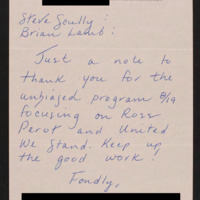 Steve Scully :
Brian Lamb :
Just a note to
thank you for the
unbiased program 8/19
focusing on Ross
Perot and United
We Stand. Keep up
the good work!
Fondly,